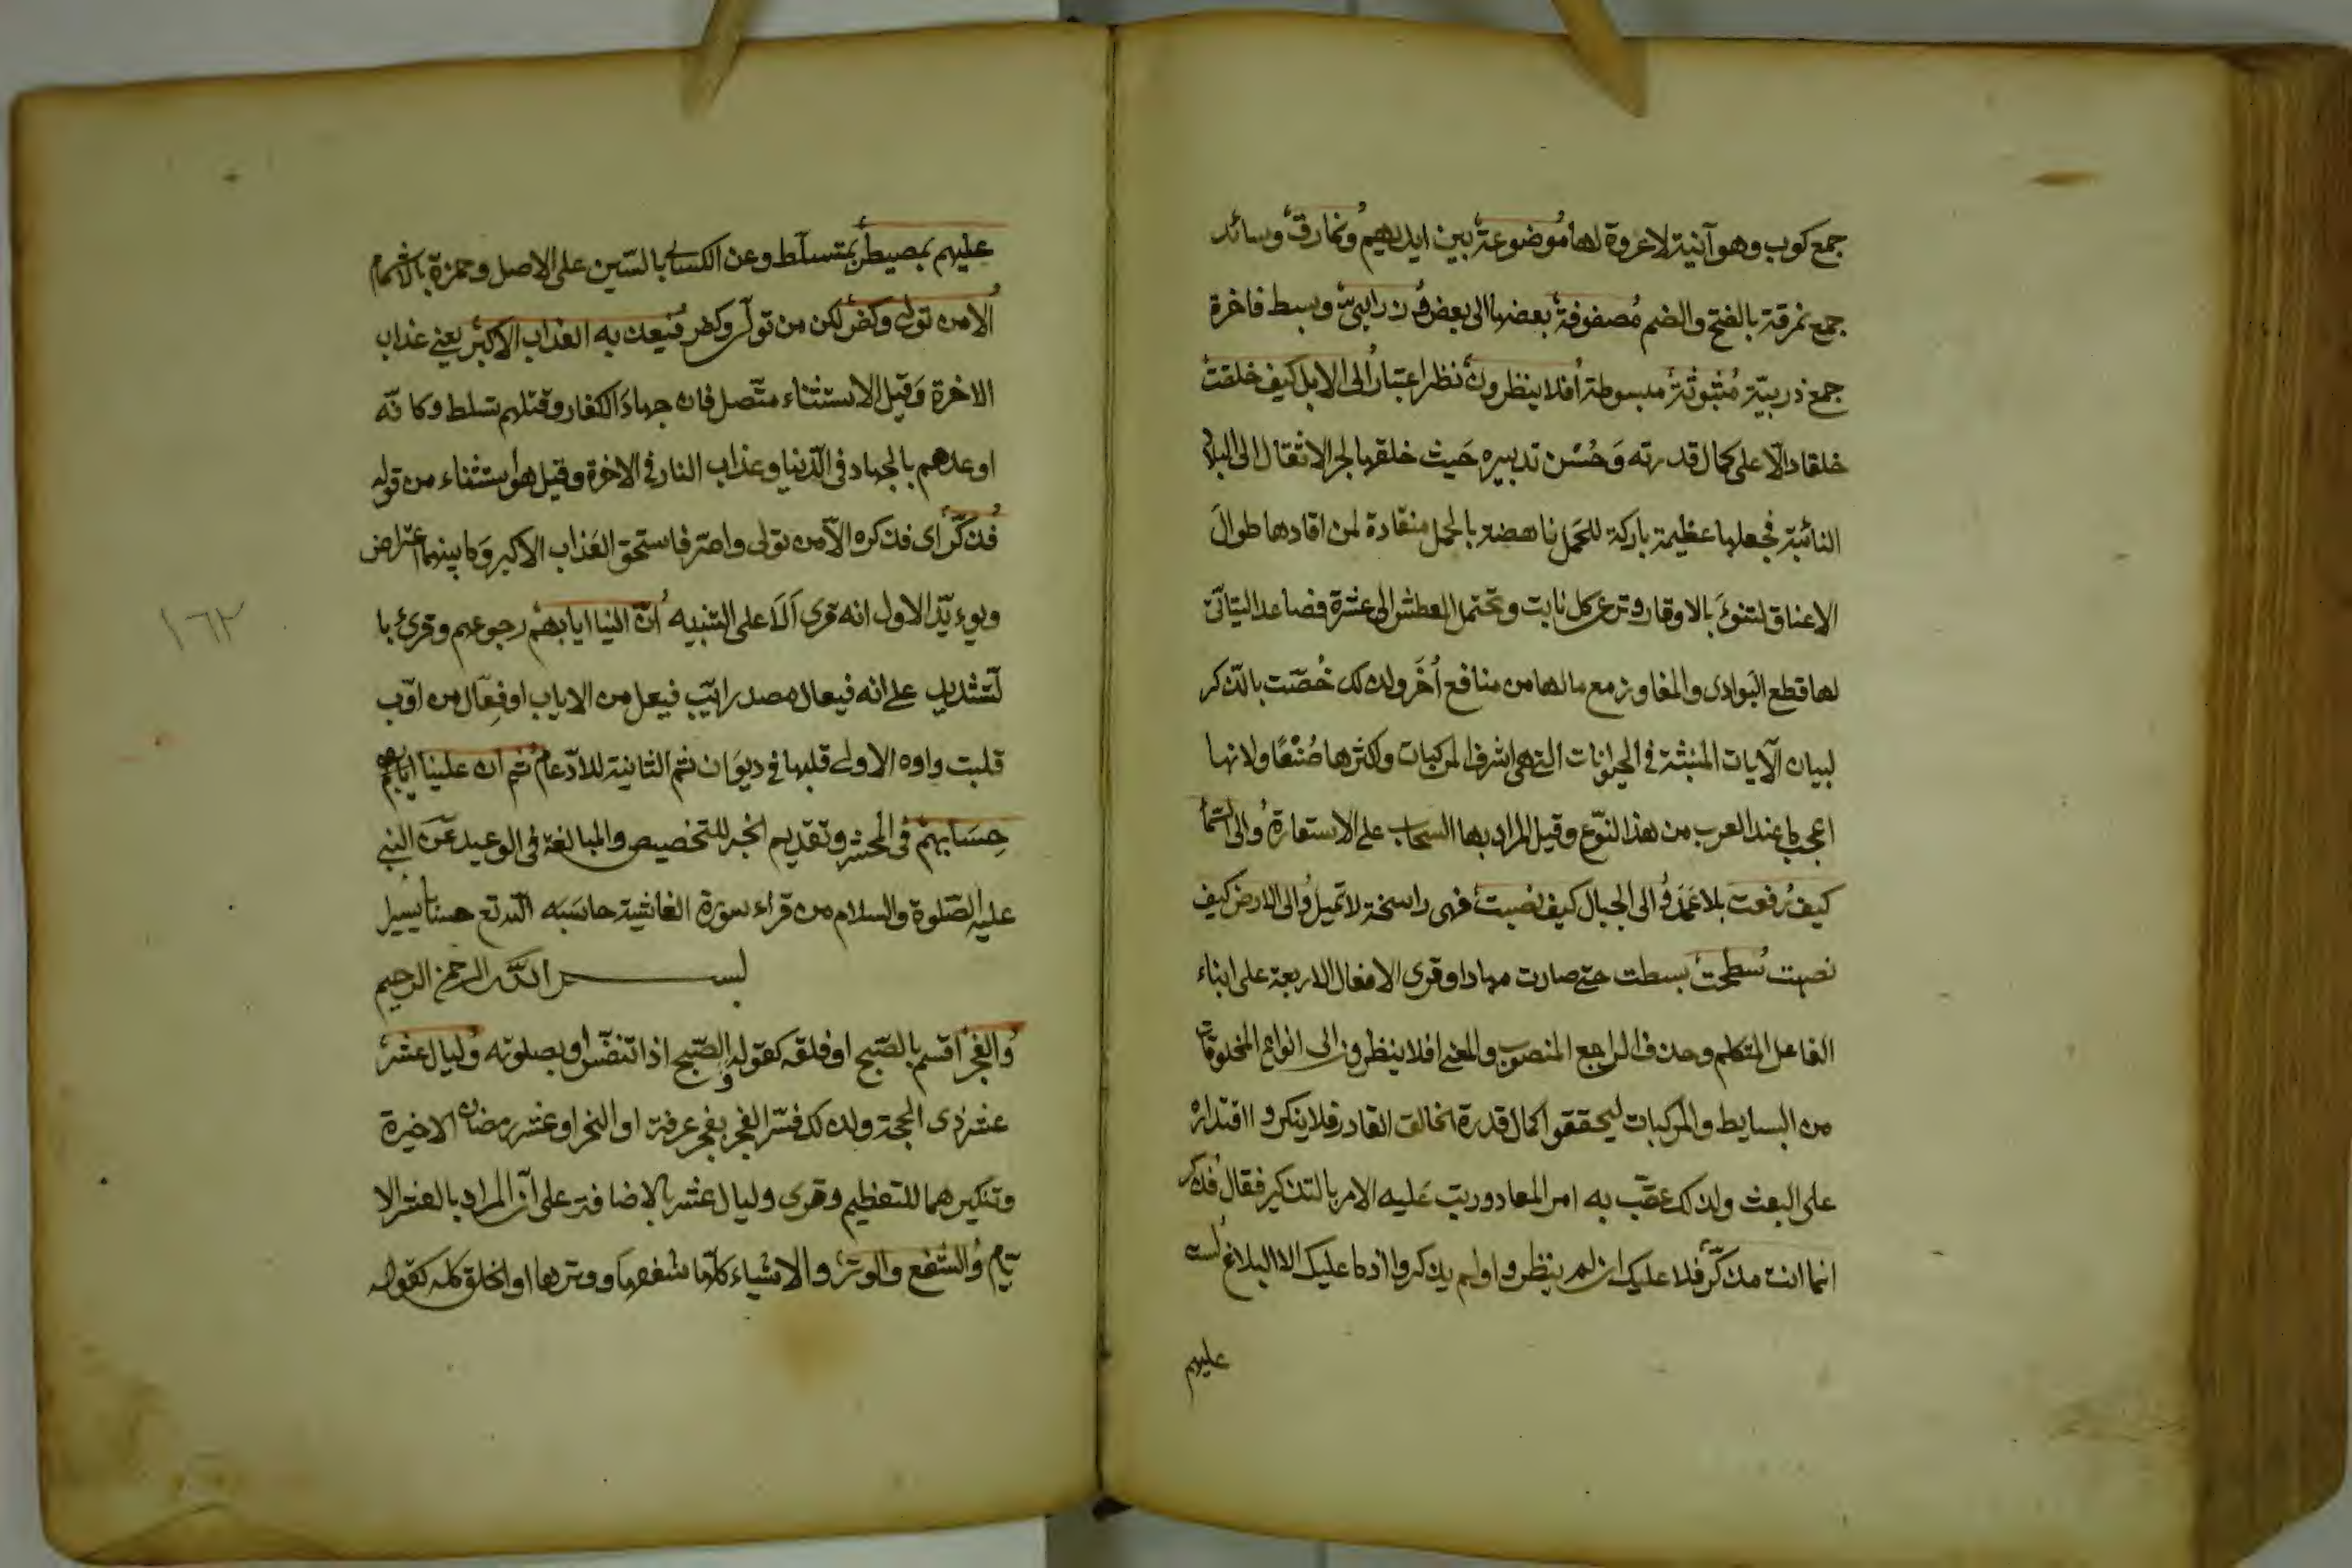 جمع كوب وهو آنية لا عروة لها موضوعة بين ايديهم ونمارق وسائد
جمع نمرقة بالفتح والضم مصفوفة بعضها الى بعض وزرابيّ وبسط فاخرة
جمع زربيّة مبثوثة مبسوطة افلا ينظرون نظر اعتبار الى الابل كيف خلقت
خلقا دالّا على كمال قدرته وَحُسْن تدبيره حَيث خلقها لجر الاثقال الى البلاد
النائية فجعلها عظيمة باركة للحَمل ناهضة بالحمل منقادة لمن اقادها طوالَ
الاعناق لتنوءَ بالاوقار وترعى كل نابت وتحتمل العطش الى عشرة فصاعدا ليتأتى
لها قطع البَوادى والمفاوز مع مالها من منافع أُخَر ولذلك خُصّت بالذكر
لبيان الآيات المنبثة فى الحيوانات التى هى اشرف المركبات واكثرها صُنْعًا ولانها
اعجب ما عند العرب من هذا النّوع وقيل المراد بها السحاب على الاستعارة والى السّماء
كيف رُفعت بلا عَمَد والى الجبال كيف نصبت فهى راسخة لا تميل والى الارض كيف
نصبت سُطحت بسطت حتى صارت مهادا وقرى الافعال الاربعة على ابناء
الفاعل المتكلم وحذف الراجع المنصوب والمعنى افلا ينظرون الى انواع المخلوقات
من البسايط والمركبات ليحققوا كمال قدرة الخالق القادر فلا ينكروا اقتداره
على البعث ولذلك عقّب به امر المعاد وريب عَليه الامر بالتذكير فقال فذكر
انما انت مذكّر فلا عليك ان لم ينظروا او لم يذكروا اذ ما عليك الا البلاغ لست
عليهم
عليهم بمصيطر بمتسلّط وعن الكسائى بالسّين على الاصل وحمزة بالاشمام
الا من تولى وكفر لكن من تولّى وكفر فيعذبه العذاب الاكبر يعنى عذاب
الاخرة وَقيل الاستثناء متّصل فان جهادَ الكفار وقتلهم تسلط وكانّه
اوعدهم بالجهاد فى الدّنيا وعذاب النار فى الاخرة وقيل هو استثناء من قوله
فذكّر اى فذكره الّا من تولى واصرّ فاستحق العَذاب الاكبر وَما بينهما اعتراض
ويوءيّد الاول انه قرى اَلَا على التنبيه انّ الينا ايابهم رجوعهم وقرئ با
لتّشديد على انه فيعال مصدر ايّب فيعل من الاياب او فعّال من اوّب
قلبت واوه الاولى قلبها فى ديوَان ثم الثانية للادغام ثم ان علينا ايابهم
حِسَابهم فى المحشر وتقديم الخبر للتخصيص والمبالغة فى الوعيد عَن النبى
عليه الصّلوة والسلام من قراء سورة الغاشية حاسَبه اللّه تع حسابا يسيرا
بسم اللّه الرحمن الرحيم
والفجر اقسم بالصّبح او فلقه كقوله والصّبح اذا تنفّس او بصلوته وليال عشر
عشر ذى الحجة ولذلك فسّر الفجر بفجر عرفة او النحر او عشر رمضان الاخيرة
وتنكيرهما للتعظيم وقرى وليال عشر بالاضافة على ان المراد بالعشر الا
يّام والشفع والوتر والاشياء كلّها شفعها ووترها او الخلق كله كقوله
١٦٢